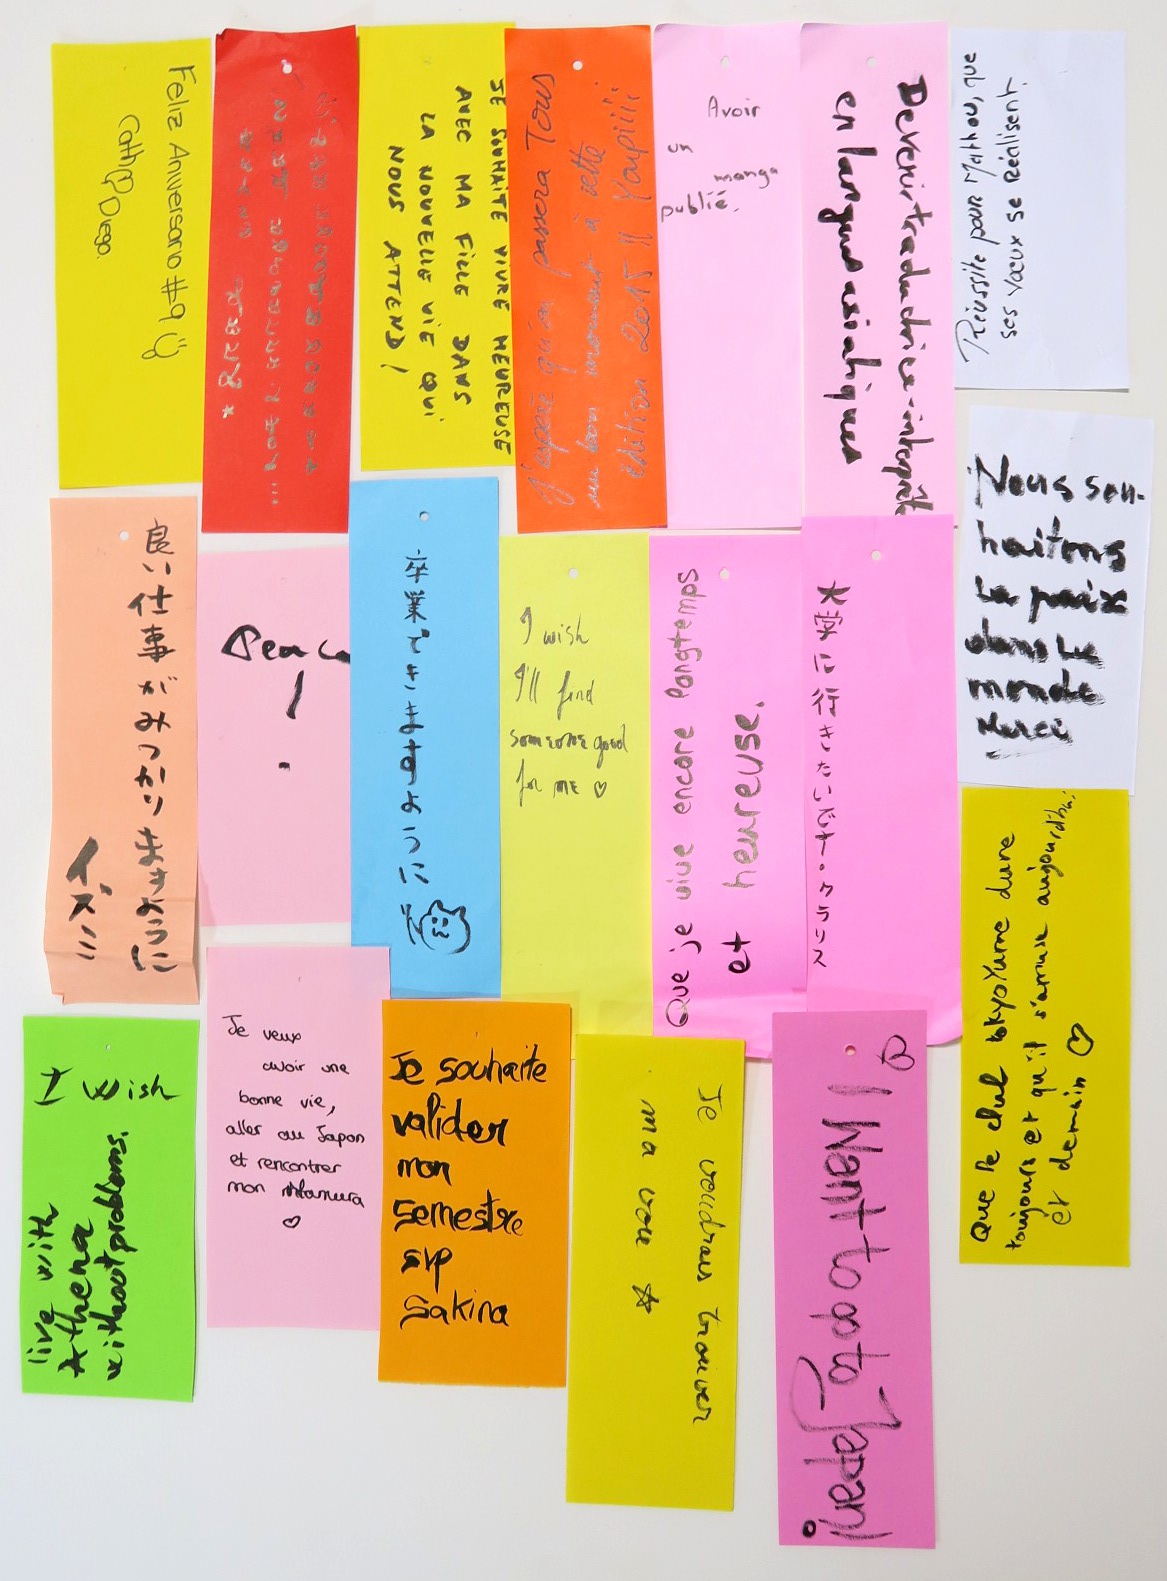 Feliz Aniversario #9
Cathy Diego.
JE SOUHAITE VIVRE HEUREUSE
AVEC MA FILLE DANS
LA NOUVELLE VIE QUI
NOUS ATTEND !
J'espère qu'on passera Tous
un bon moment à cette
édition 2015 !! Youpiiii
Avoir
un
manga
publié.
Devenir traductrice-interprète
en langues asiatiques
Réussite pour Mathou, que
ses vœux se réalisent.
良い仕事がみつかりますように
イズミ
Peace
!
卒業できますように
I wish
I'll find
someone good
for me ♡
Que je vive encore longtemps
et heureuse.
大学に行きたいです。クラリス
Nous sou-
haitons
la paix
dans le
monde
Merci
I wish
live with
Athena
without problems.
Je veux
avoir une
bonne vie,
aller au Japon
et rencontrer
mon
♡
Je souhaite
valider
mon
semestre
svp
Sakina
Je voudrais trouver
ma voie ☆
♡
I Want to go to Japan!
Que le club tokyoYume dure
toujours et qu'il s'amuse aujourd'hui
et demain ♡